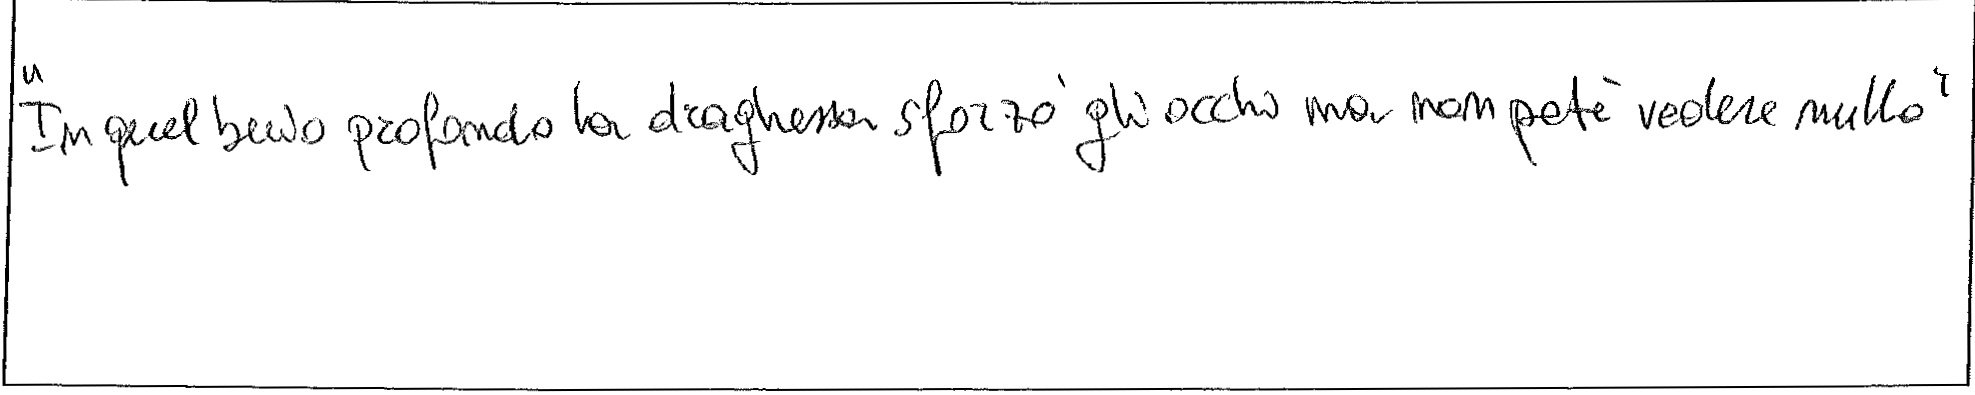 "In quel buio profondo la draghessa sforzò gli occhi ma non potè vedere nulla"